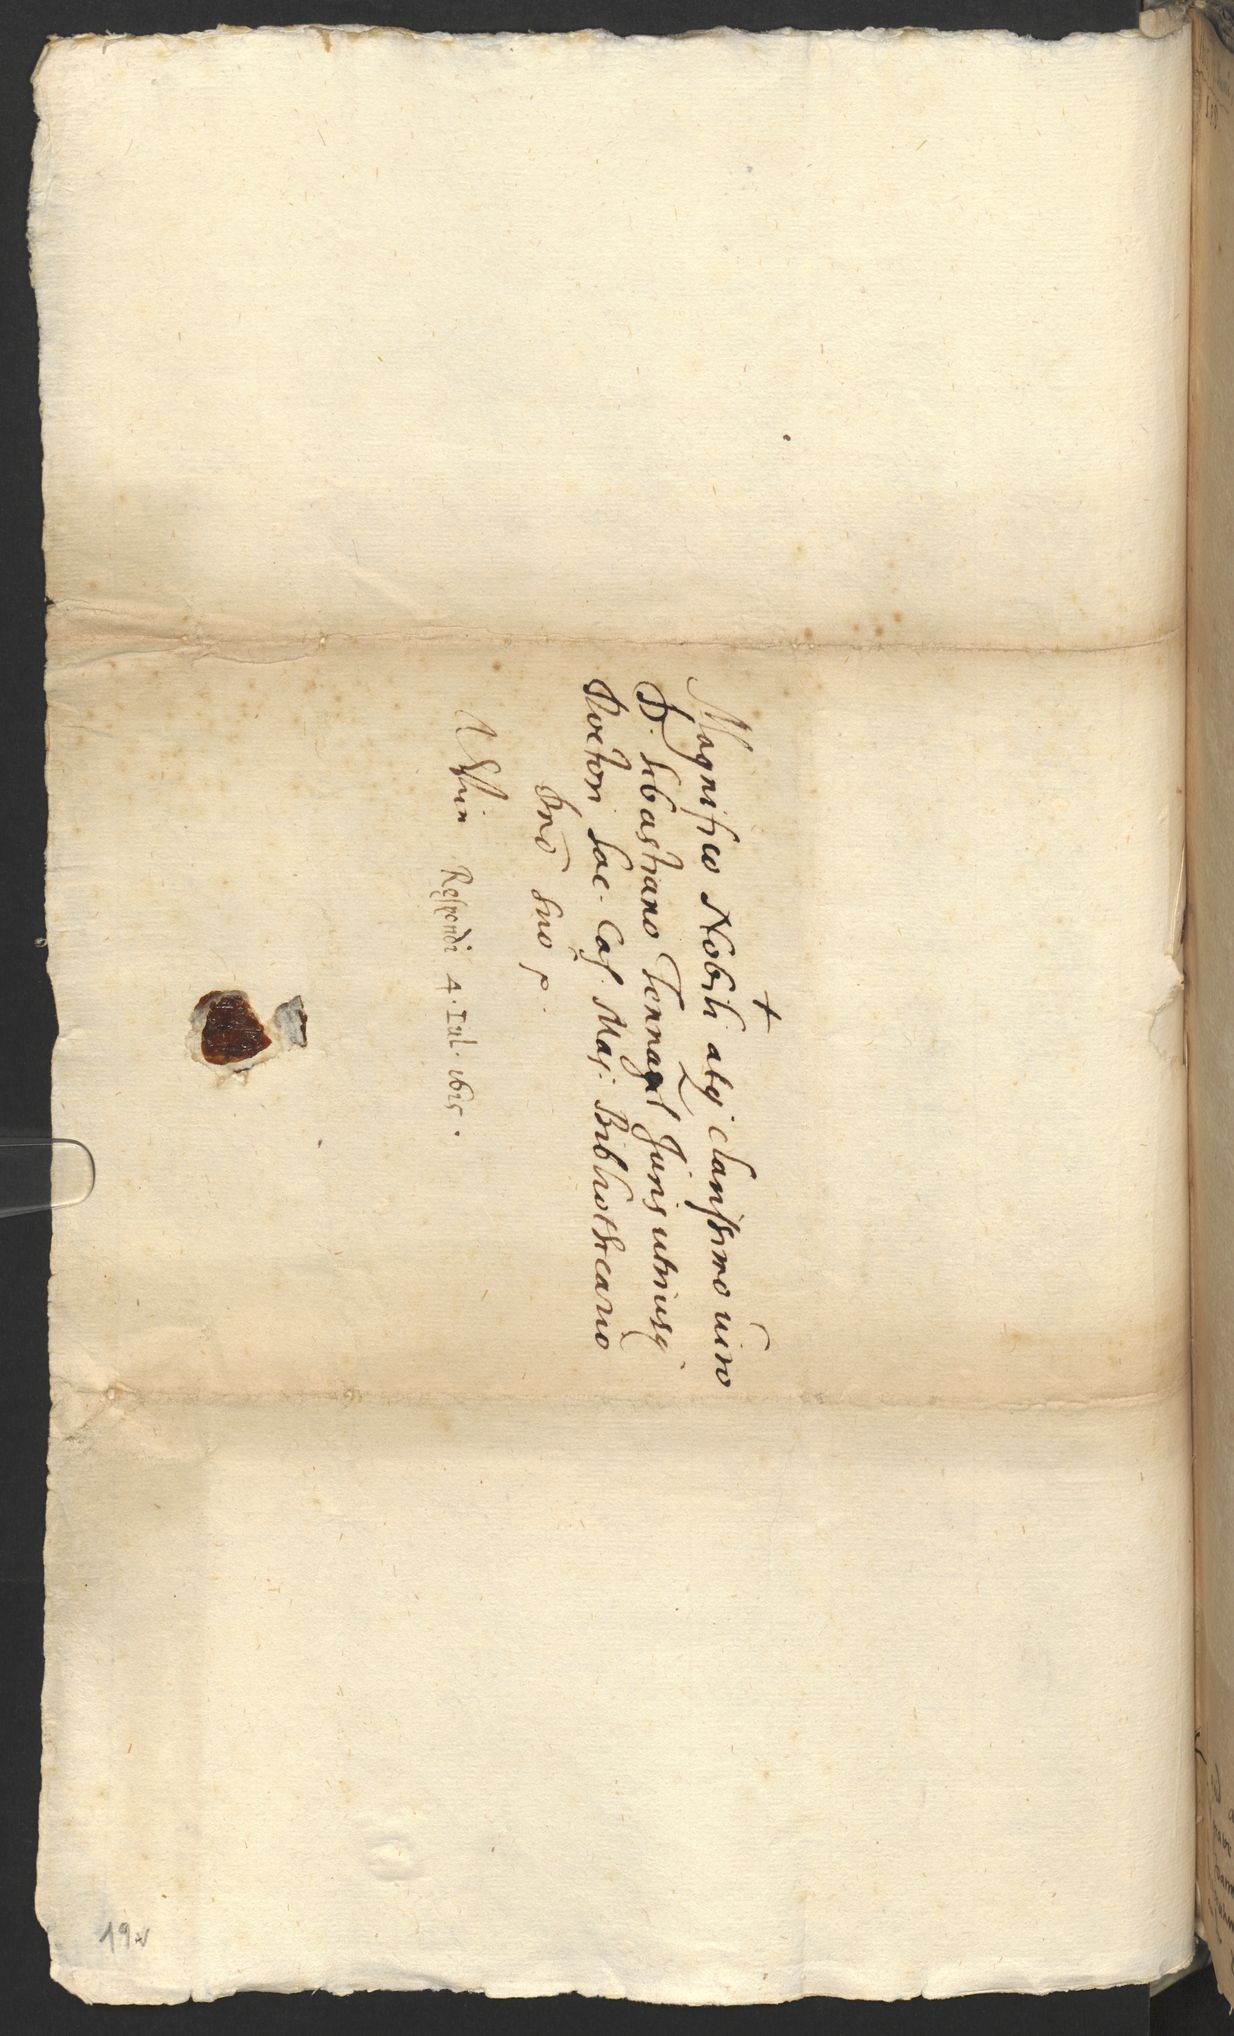 +
Magnifico Nobili atq; clarissimo uiro
D. Sebastiano Tennagel Juris utriusq;
Doctori Sac. Caes. Maj. Bibliothecario
Dno suo
Wien
Respondi 4. Iul. 1625.
19v